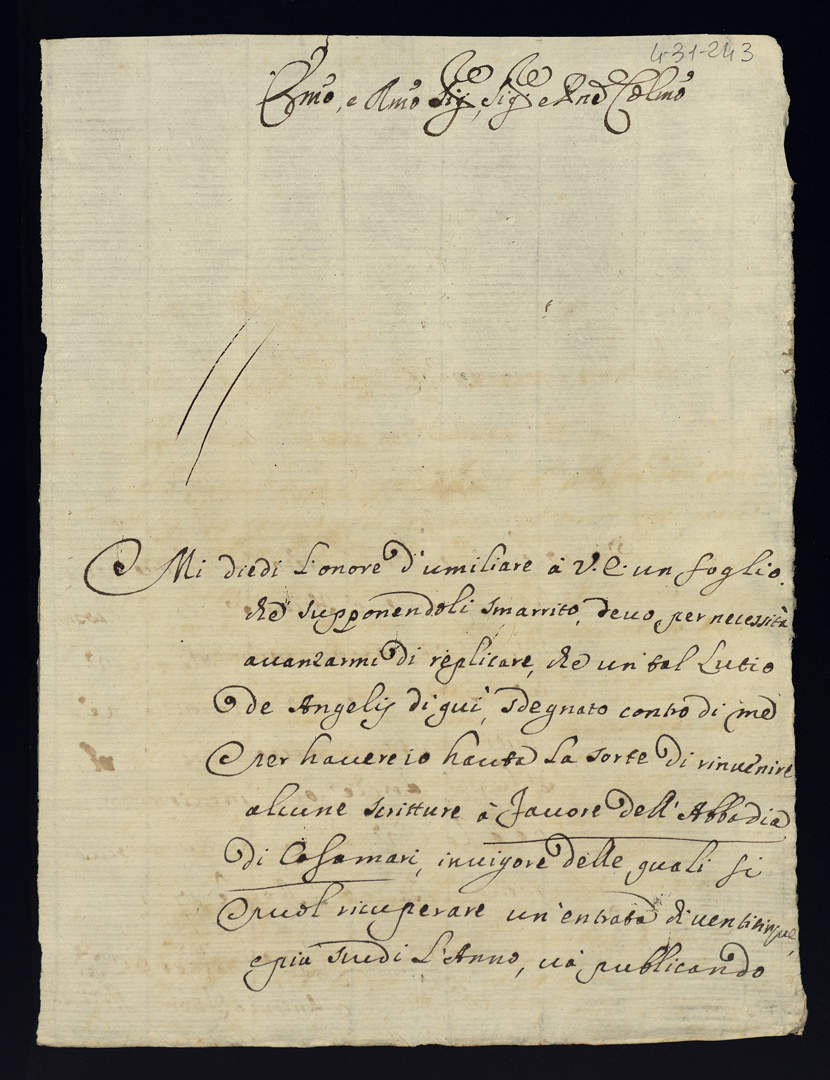 4-31-243
Emo, e Rmo Sig., Sig. e Pne Colmo
Mi diedi l'onore d'umiliare à V. E. un foglio.
che supponendoli smarrito, devo, per necessità
avanzarmi di replicare, che un tal Lutio
De Angelis di qui, sdegnato contro di me
per havere io hauta la sorte di rinvenire
alcune scritture à favore dell' Abbadia
di Casamari, in vigore delle quali si
puol ricuperare un' entrata di venticinque,
e più scudi l'Anno, và publicando